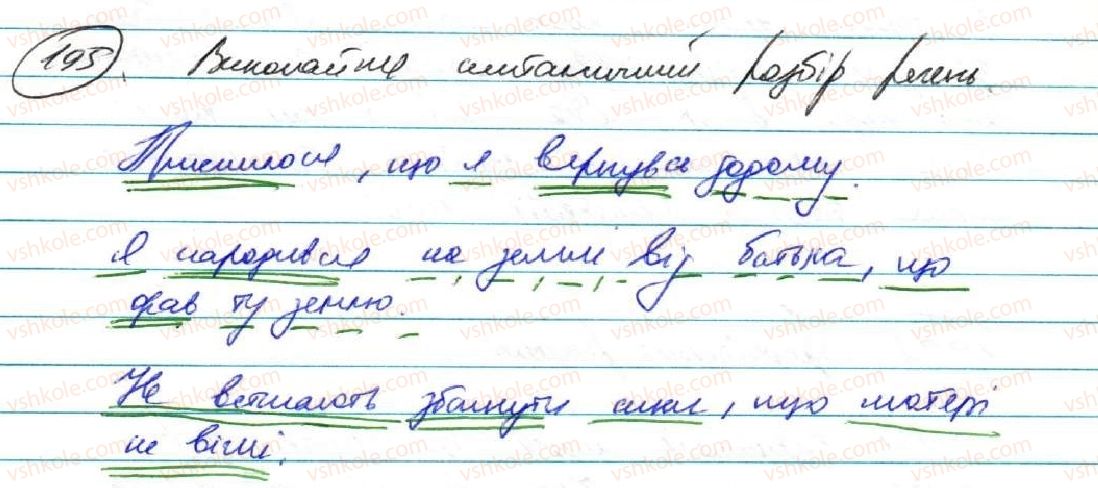 195. Виконайте синтаксичний розбір речень.
Приснилося, що я вернувсь додому.
Я народився на землі від батька, що
орав ту землю.
Не встигають збагнути сини, що матері
не вічні.